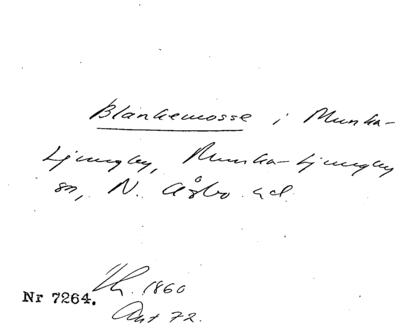 Blankemosse i Munka-
Ljungby, Munka-Ljungby
sn, N. Åsbo hd.
1860
Nr 7264.
Ant 72.